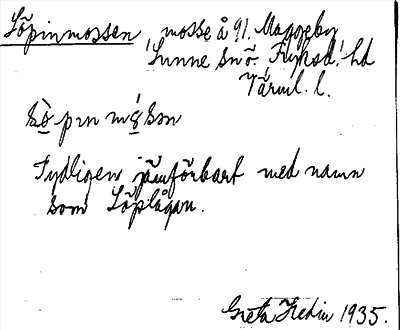 Löpinmossen, mosse å 91. Maggeby
Sunne snö. Fryksd. hd
Värml. l.
lö̀pɪn mɷ́sən
Tydligen jämförbart med namn
som Löplågan.
Greta Hedin 1935.